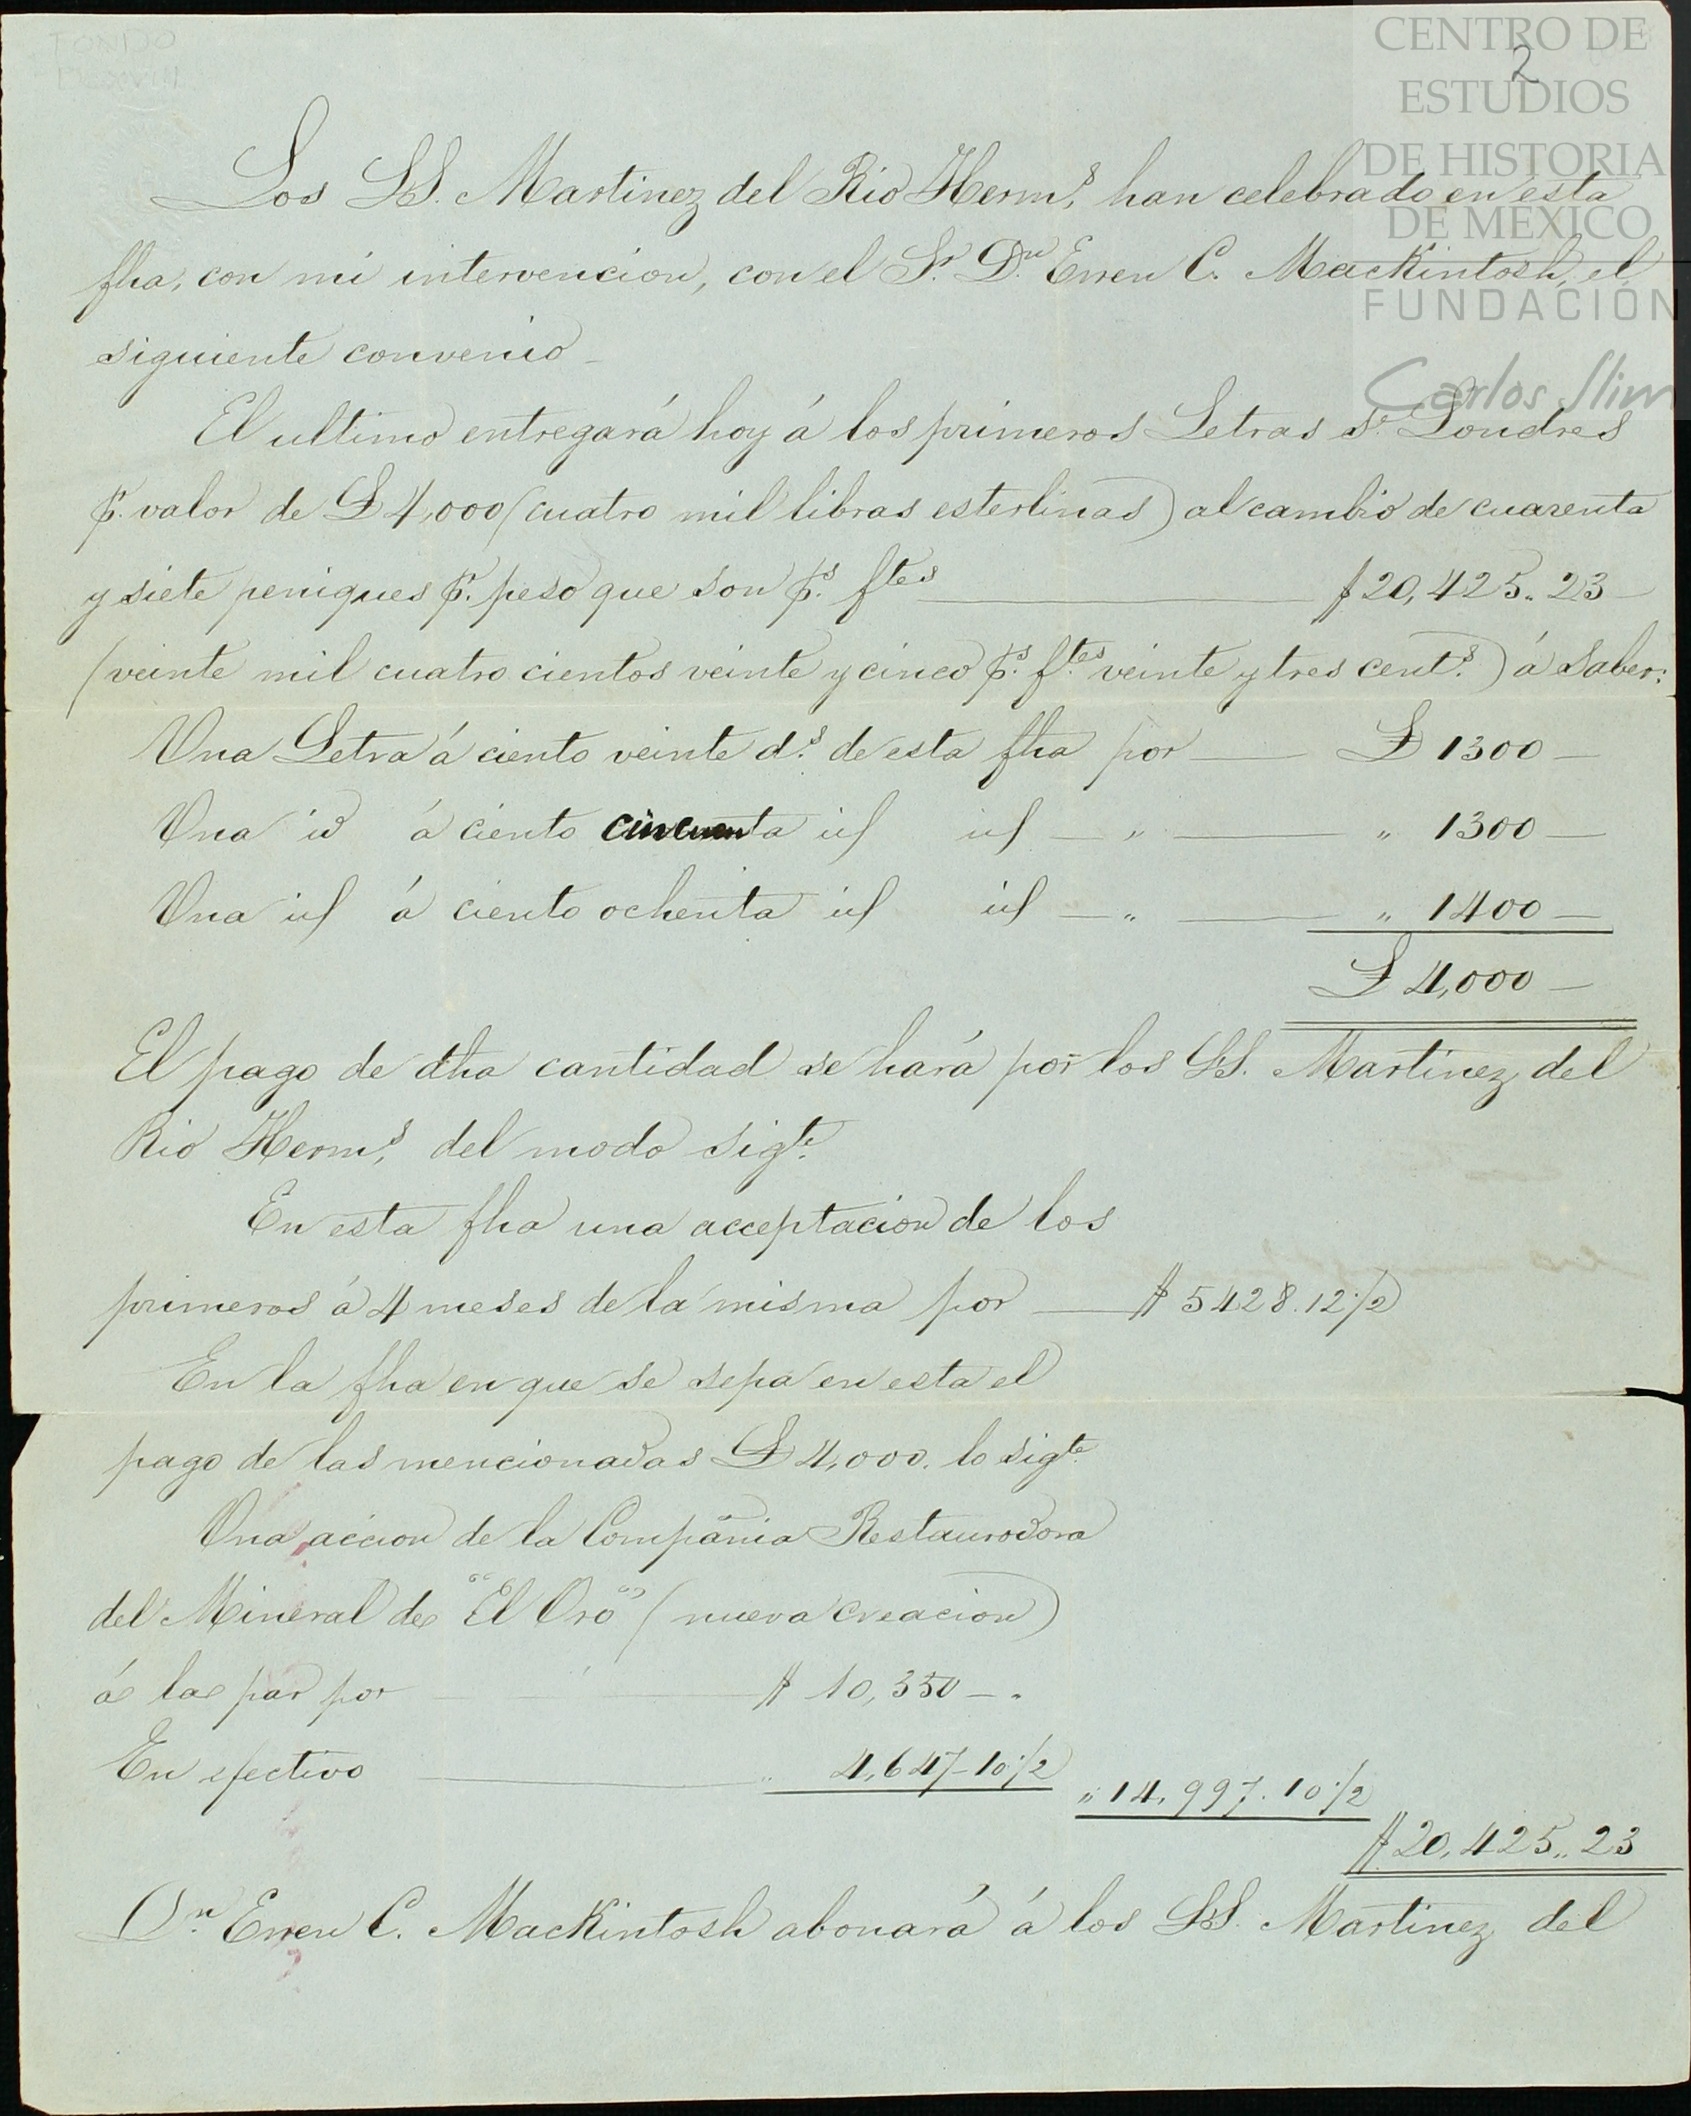 CENTRO DE
ESTUDIOS
DE HISTORIA
DE MÉXICO
FUNDACIÓN
Carlos Slim
2
FONDO
Los SS. Martinez del Rio Herms, han celebrado en esta
fha, con mi intervencion, con el Sr. Dn. Ewen C. Mackintosh, el
siguiente convenio _
El ultimo entregará hoy á los primeros Letras se. Londres
p. valor de £ 4,000 (cuatro mil libras esterlinas) al cambio de cuarenta
y siete peniques p. peso que son ps. ftes ___ $ 20,425.. 23
(veinte mil cuatro cientos veinte y cinco ps. ftes. veinte y tres cents.) á saber:
Una Letra á ciento veinte ds. de esta fha por ___ £ 1300 _
Una id á ciento cincuenta id id _ " ___ " 1300 _
Una id á ciento ochenta id id _ " ___ " 1400 _
£ 4,000 _
El pago de dha cantidad se hará por los SS. Martinez del
Rio Herms, del modo sigte.
En esta fha una acceptacion de los
primeros á 4 meses de la misma por ___ $ 5428. 12 1/2
En la fha en que se sepa en esta el
pago de las mencionadas £ 4,000. lo sigte.
Una accion de la Compañia Restauradora
del Mineral de "El Oro" (nueva creacion)
á la par por ___ $ 10,350 _ "
En efectivo ___ " 4,647-10 1/2 " 14,997. 10 1/2
$ 20,425.. 23
Dn. Ewen C. Mackintosh abonará á los SS. Martinez del